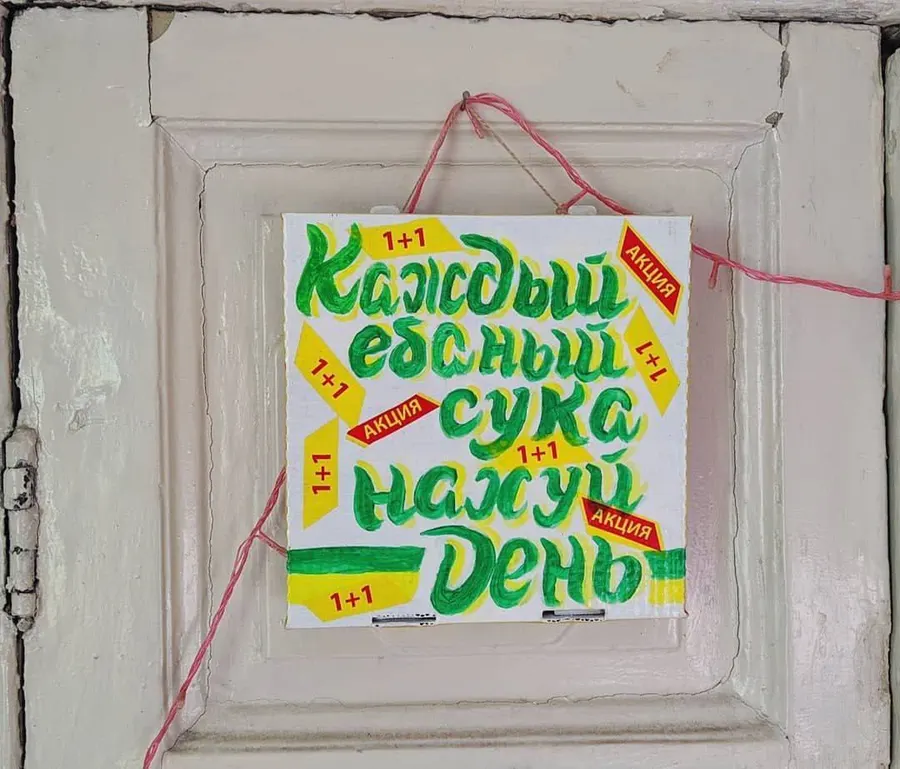 1+1
Каждый
АКЦИЯ
ебаный
1+1
1+1
АКЦИЯ
сука
1+1
1+1
нахуй
АКЦИЯ
День
1+1